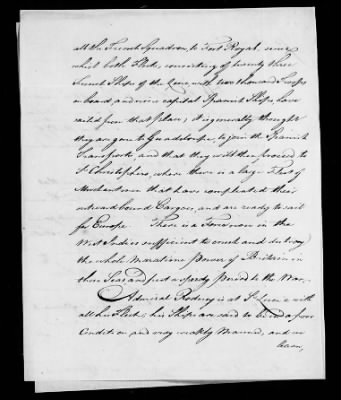 all the French Squadron, to Fort Royal, since
which both Fleets, consisting of twenty three
French Ships of the Line, with two thousand Troops
on board, and nine capital Spanish Ships, have
sailed from that place; it is generally thought
they are gone to Guadeloupe, to join the Spanish
Transports, and that they will then proceed to
St. Christophers, where there is a large Fleet of
Merchantmen that have compleated their
outward bound Cargoes, and are ready to sail
for Europe. There is a Force now in the
West Indies sufficient to crush and destroy
the whole Maratime power of Britain in
those Seas and put a speedy Period to the War.
Admiral Rodney is at St. Lucia with
all his Fleet; his Ships are said to be in a poor
Condition and very weakly Manned, and no